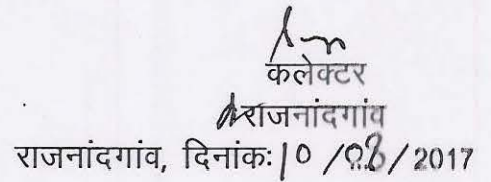 कलेक्टर
राजनांदगांव
राजनांदगांव, दिनांक: 10 /08/ 2017